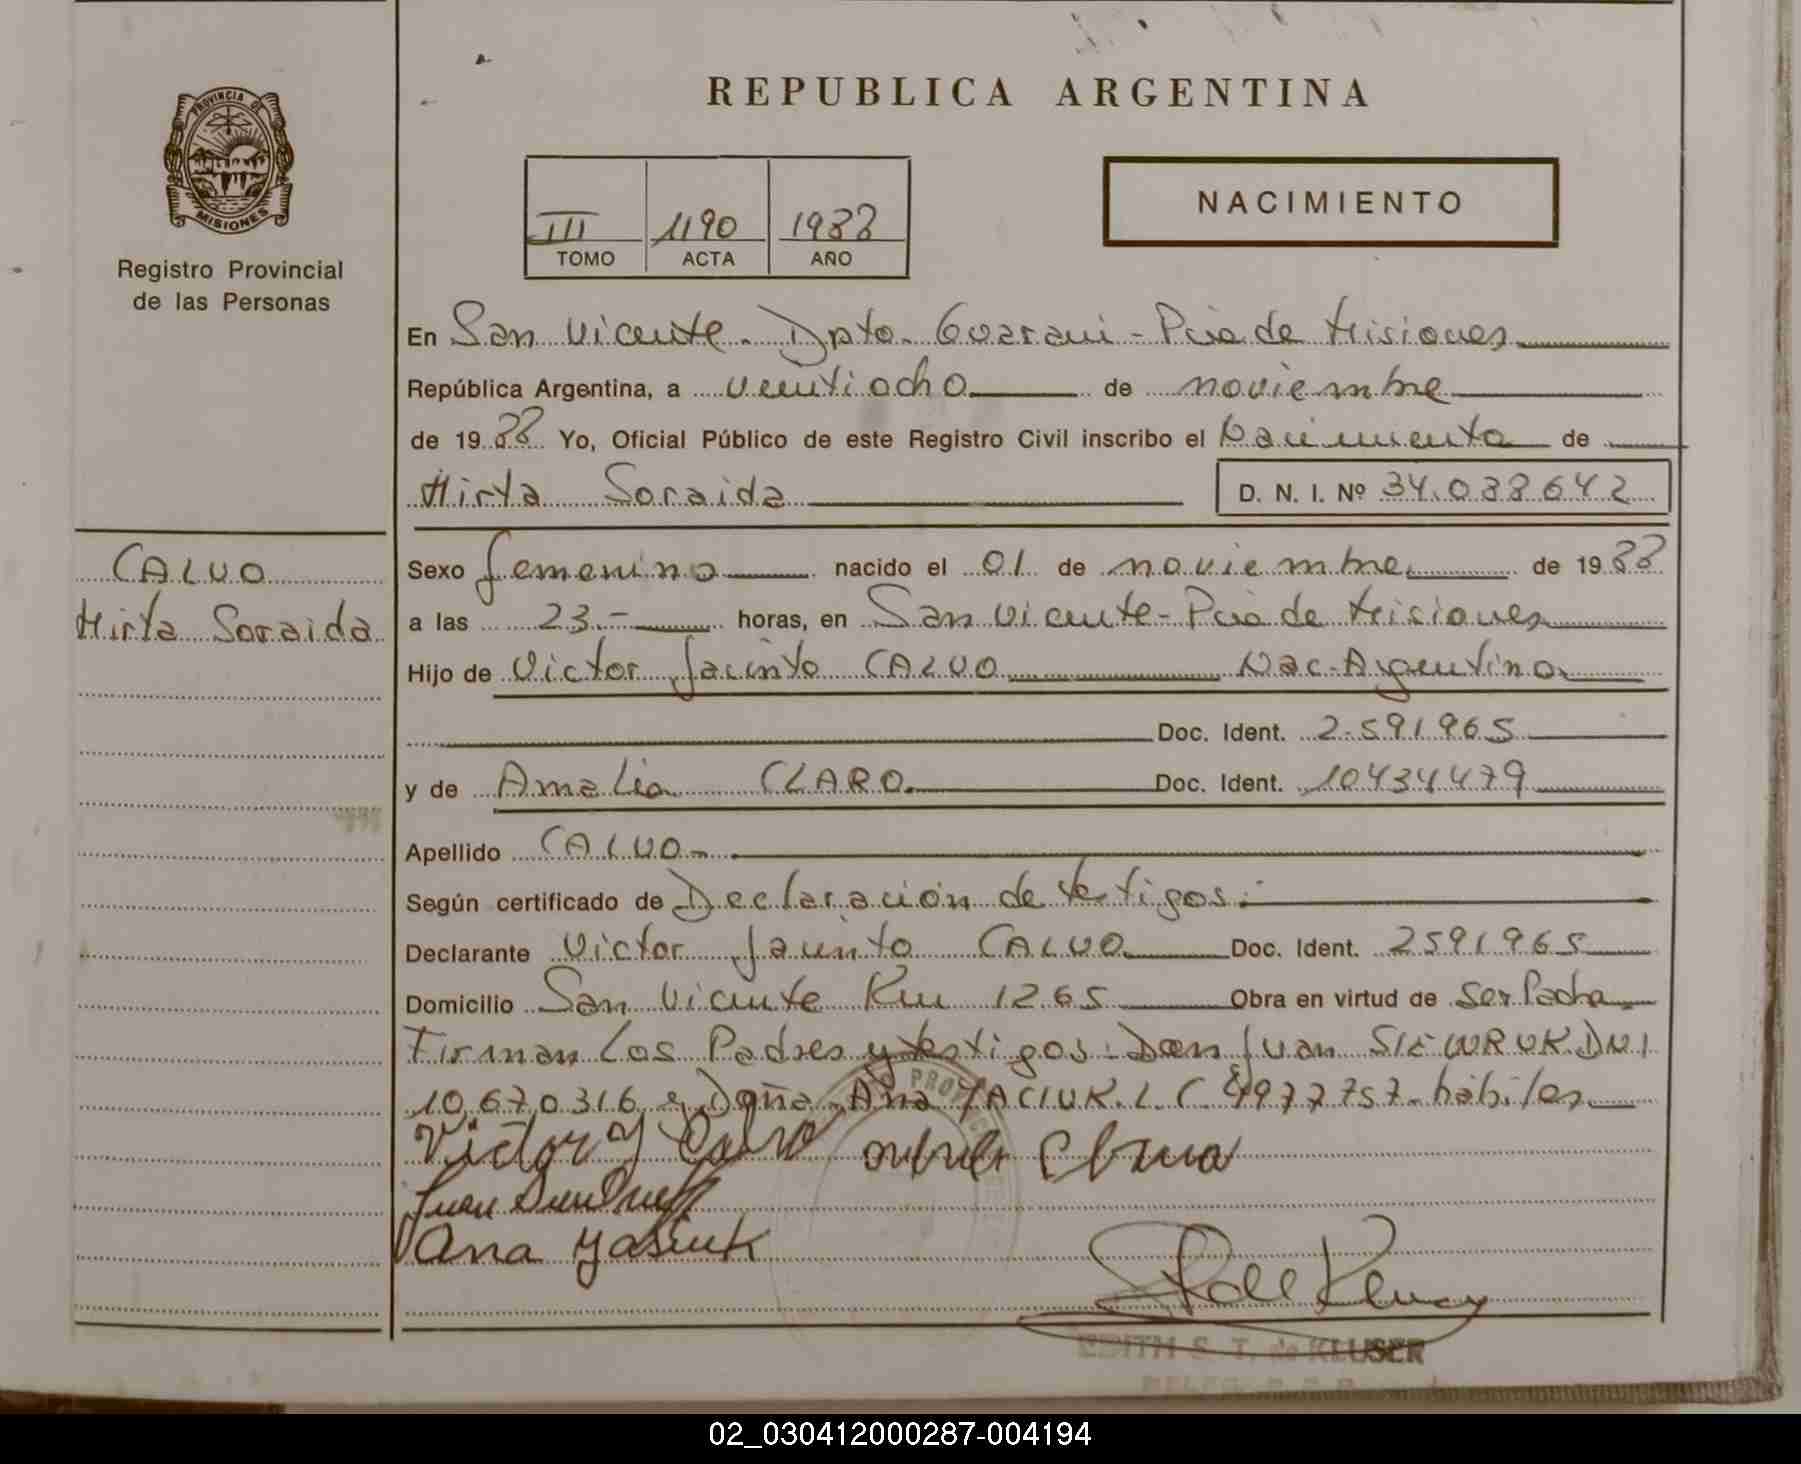 PROVINCIA DE
MISIONES
Registro Provincial
de las Personas
REPUBLICA ARGENTINA
III 1190 1988
TOMO ACTA AÑO
NACIMIENTO
En San Vicente. Dpto. Guarani - Pcia de Misiones
República Argentina, a veintiocho de noviembre
de 1988 Yo, Oficial Público de este Registro Civil inscribo el Nacimiento de
Mirta Soraida D. N. I. Nº 34.088642
CALVO
Mirta Soraida
Sexo femenino nacido el 01 de noviembre de 1988
a las 23.- horas, en San Vicente - Pcia de Misiones
Hijo de Victor Jacinto CALVO Nac. Argentino
Doc. Ident. 2.591965
y de Amalia CLARO Doc. Ident. 10434479
Apellido CALVO-
Según certificado de Declaración de testigos.-
Declarante Victor Jacinto CALVO Doc. Ident. 2591965
Domicilio San Vicente Km 1265 Obra en virtud de Ser Padre
Firman Los Padres y testigos: Don Juan SIEWRUK DNI
10.670316 y Doña Ana YACIUK. L.C. 4977757. hábiles
Victor J Calvo
Juan
Ana Yasiuk
EDITH S. T. de KLUSER
02_030412000287-004194